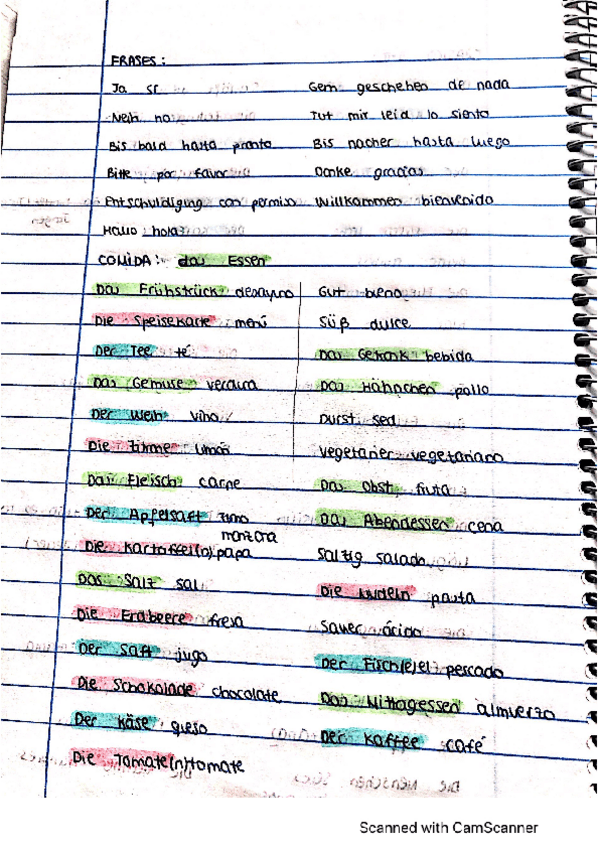 FRASES:
Ja sr Gern geschehen de nada
Nein no Tut mir leid lo siento
Bis bald hasta pronto Bis nacher hasta luego
Bitte por favor Danke gracias
Entschuldigung con permiso Willkommen bienvenido
Hallo hola
COMIDA: das Essen
Das Frühstrück desayuno Gut bueno
Die Speisekarte menú Süß dulce
Der Tee té Das Getrank bebida
Das Gemuse verdura Das Hühnchen pollo
Der Wein vino Durst sed
Die limon Vegetarier vegetariano
Das Fleisch carne Das Obst fruta
Der Apfelsaft Das Abendessen cena
manzana
Die Kartoffel(n) papa Salzig salado
Das Salz sal Die Nudeln pasta
Die Erdbeere fresa Sauer ácido
Der Saft jugo Der Fisch(e) pescado
Die Schokolade chocolate Das Mittagessen almuerzo
Der Käse queso Der Kaffee café
Die Tomate(n) tomate
Scanned with CamScanner